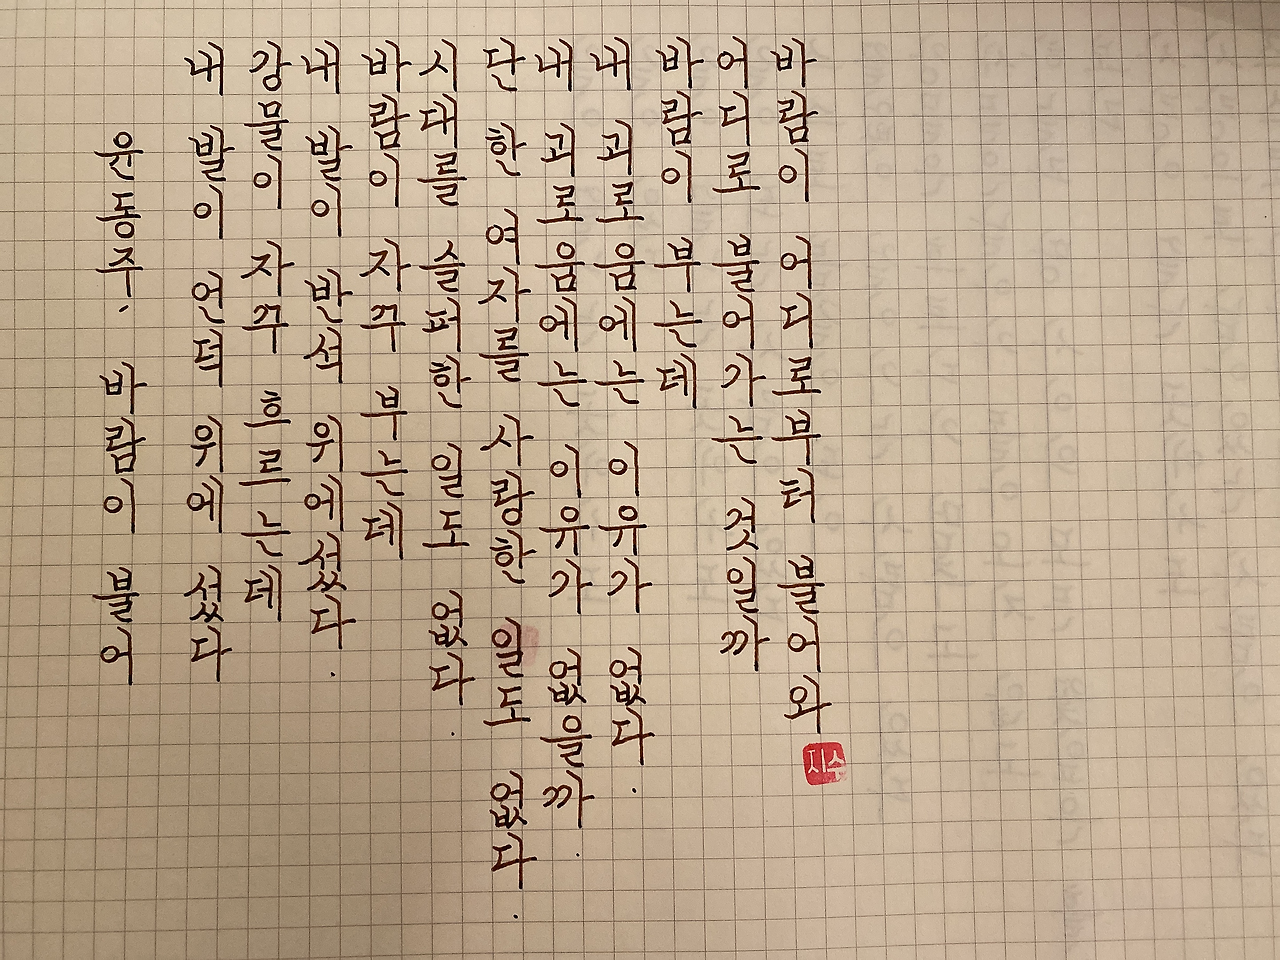 바람이 어디로부터 불어와
어디로 불어가는 것일까
바람이 부는데
내 괴로움에는 이유가 없다.
내 괴로움에는 이유가 없을까.
단 한 여자를 사랑한 일도 없다.
시대를 슬퍼한 일도 없다.
바람이 자꾸 부는데
내 발이 반석 위에 섰다.
강물이 자꾸 흐르는데
내 발이 언덕 위에 섰다
윤동주. 바람이 불어
지수